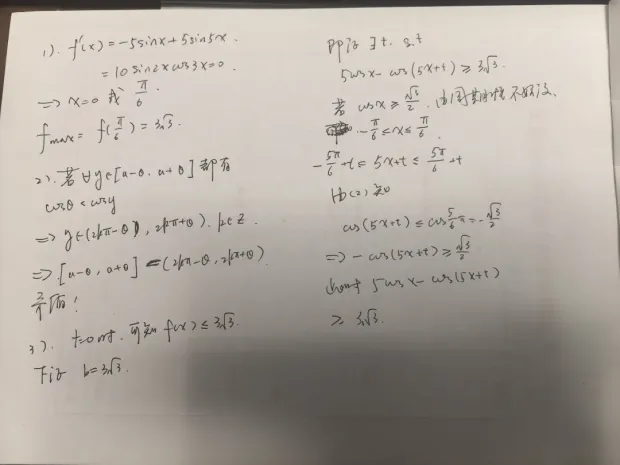 1). f'(x) = -5sinx + 5sin5x.
= 10sin2x cos3x = 0.
⟹ x=0 或 π/6.
fmax = f(π/6) = 3√3.
2). 若 ∀y∈[a-θ, a+θ] 都有
cosθ < cosy
⟹ y∈(2kπ-θ, 2kπ+θ). k∈Z.
⟹ [a-θ, a+θ] ⊂ (2kπ-θ, 2kπ+θ)
矛盾!
3). t=0时. 可知 f(x) ≤ 3√3.
下证 b=3√3.
即证 ∃t. s.t
5cosx - cos(5x+t) ≥ 3√3.
若 cosx ≥ √3/2. 由周期性不妨设.
-π/6 ≤ x ≤ π/6.
-5π/6 + t ≤ 5x+t ≤ 5π/6 + t
由(2)知
cos(5x+t) ≤ cos5/6π = -√3/2
⟹ -cos(5x+t) ≥ √3/2
此时 5cosx - cos(5x+t)
≥ 3√3.